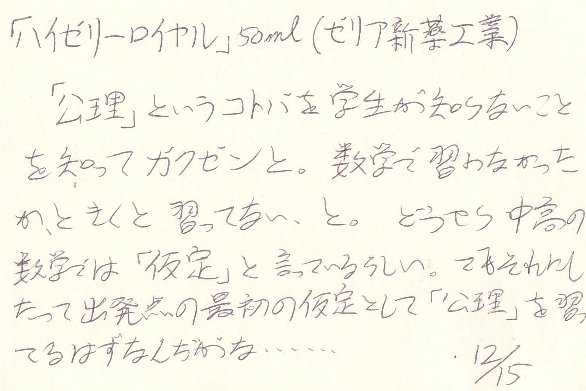 「ハイゼリーロイヤル」50ml(ゼリア新薬工業)
「公理」というコトバを学生が知らないこと
を知ってガクゼンと。数学で習わなかった
か、ときくと習ってない、と。どうやら中高の
数学では「仮定」と言っているらしい。でもそれにし
たって出発点の最初の仮定として「公理」を習っ
てるはずなんだがな……
12/15